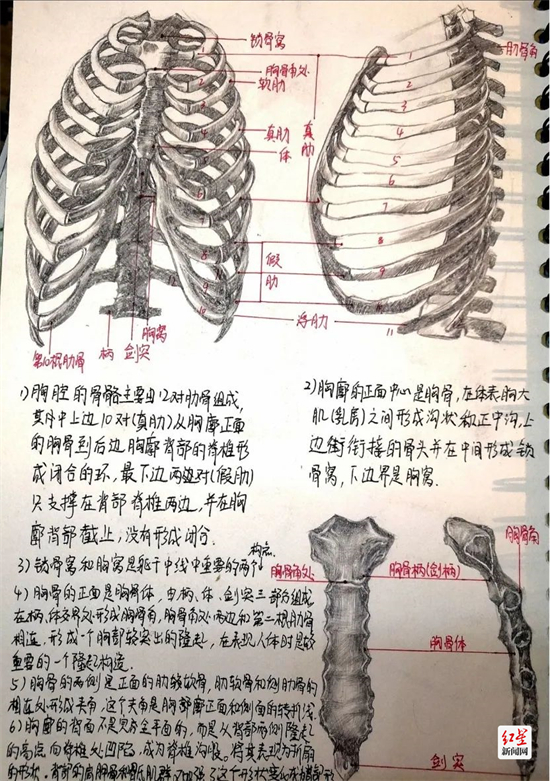 锁骨窝
胸骨角处
软肋
真肋
体
真肋
假
肋
浮肋
肋骨角
1
2
3
4
5
6
7
8
9
11
第10根肋骨
柄
剑突
胸窝
1)胸腔的骨骼主要由12对肋骨组成,
其中上边10对(真肋)从胸廓正面
的胸骨到后边胸廓背部的脊椎形
成闭合的环,最下边两对(假肋)
只支撑在背部脊椎两边,并在胸
廓背部截止,没有形成闭合.
2)胸廓的正面中心是胸骨,在体表胸大
肌(乳房)之间形成沟状称正中沟,上
边衔接的骨头并在中间形成锁
骨窝,下边界是胸窝.
3)锁骨窝和胸窝是躯干中线中重要的两个构点.
4)胸骨的正面是胸骨体,由柄、体、剑突三部分组成
在柄、体交界处形成胸骨角,胸骨角处两边和第二根肋骨
相连,形成一个胸部较突出的隆起,在表现人体时是较
重要的一个隆起构造.
5)胸骨的两侧是正面的肋软骨,肋软骨和侧肋骨的
相连处形成夹角,这个夹角是胸部廓正面和侧面的转折线
6)胸廓的背面不是完全平面的,而是从背部两侧隆起
的高点向脊椎处凹陷,成为脊椎沟
胸骨角处
胸骨柄(剑柄)
胸骨角
胸骨体
剑突
红星
新闻网